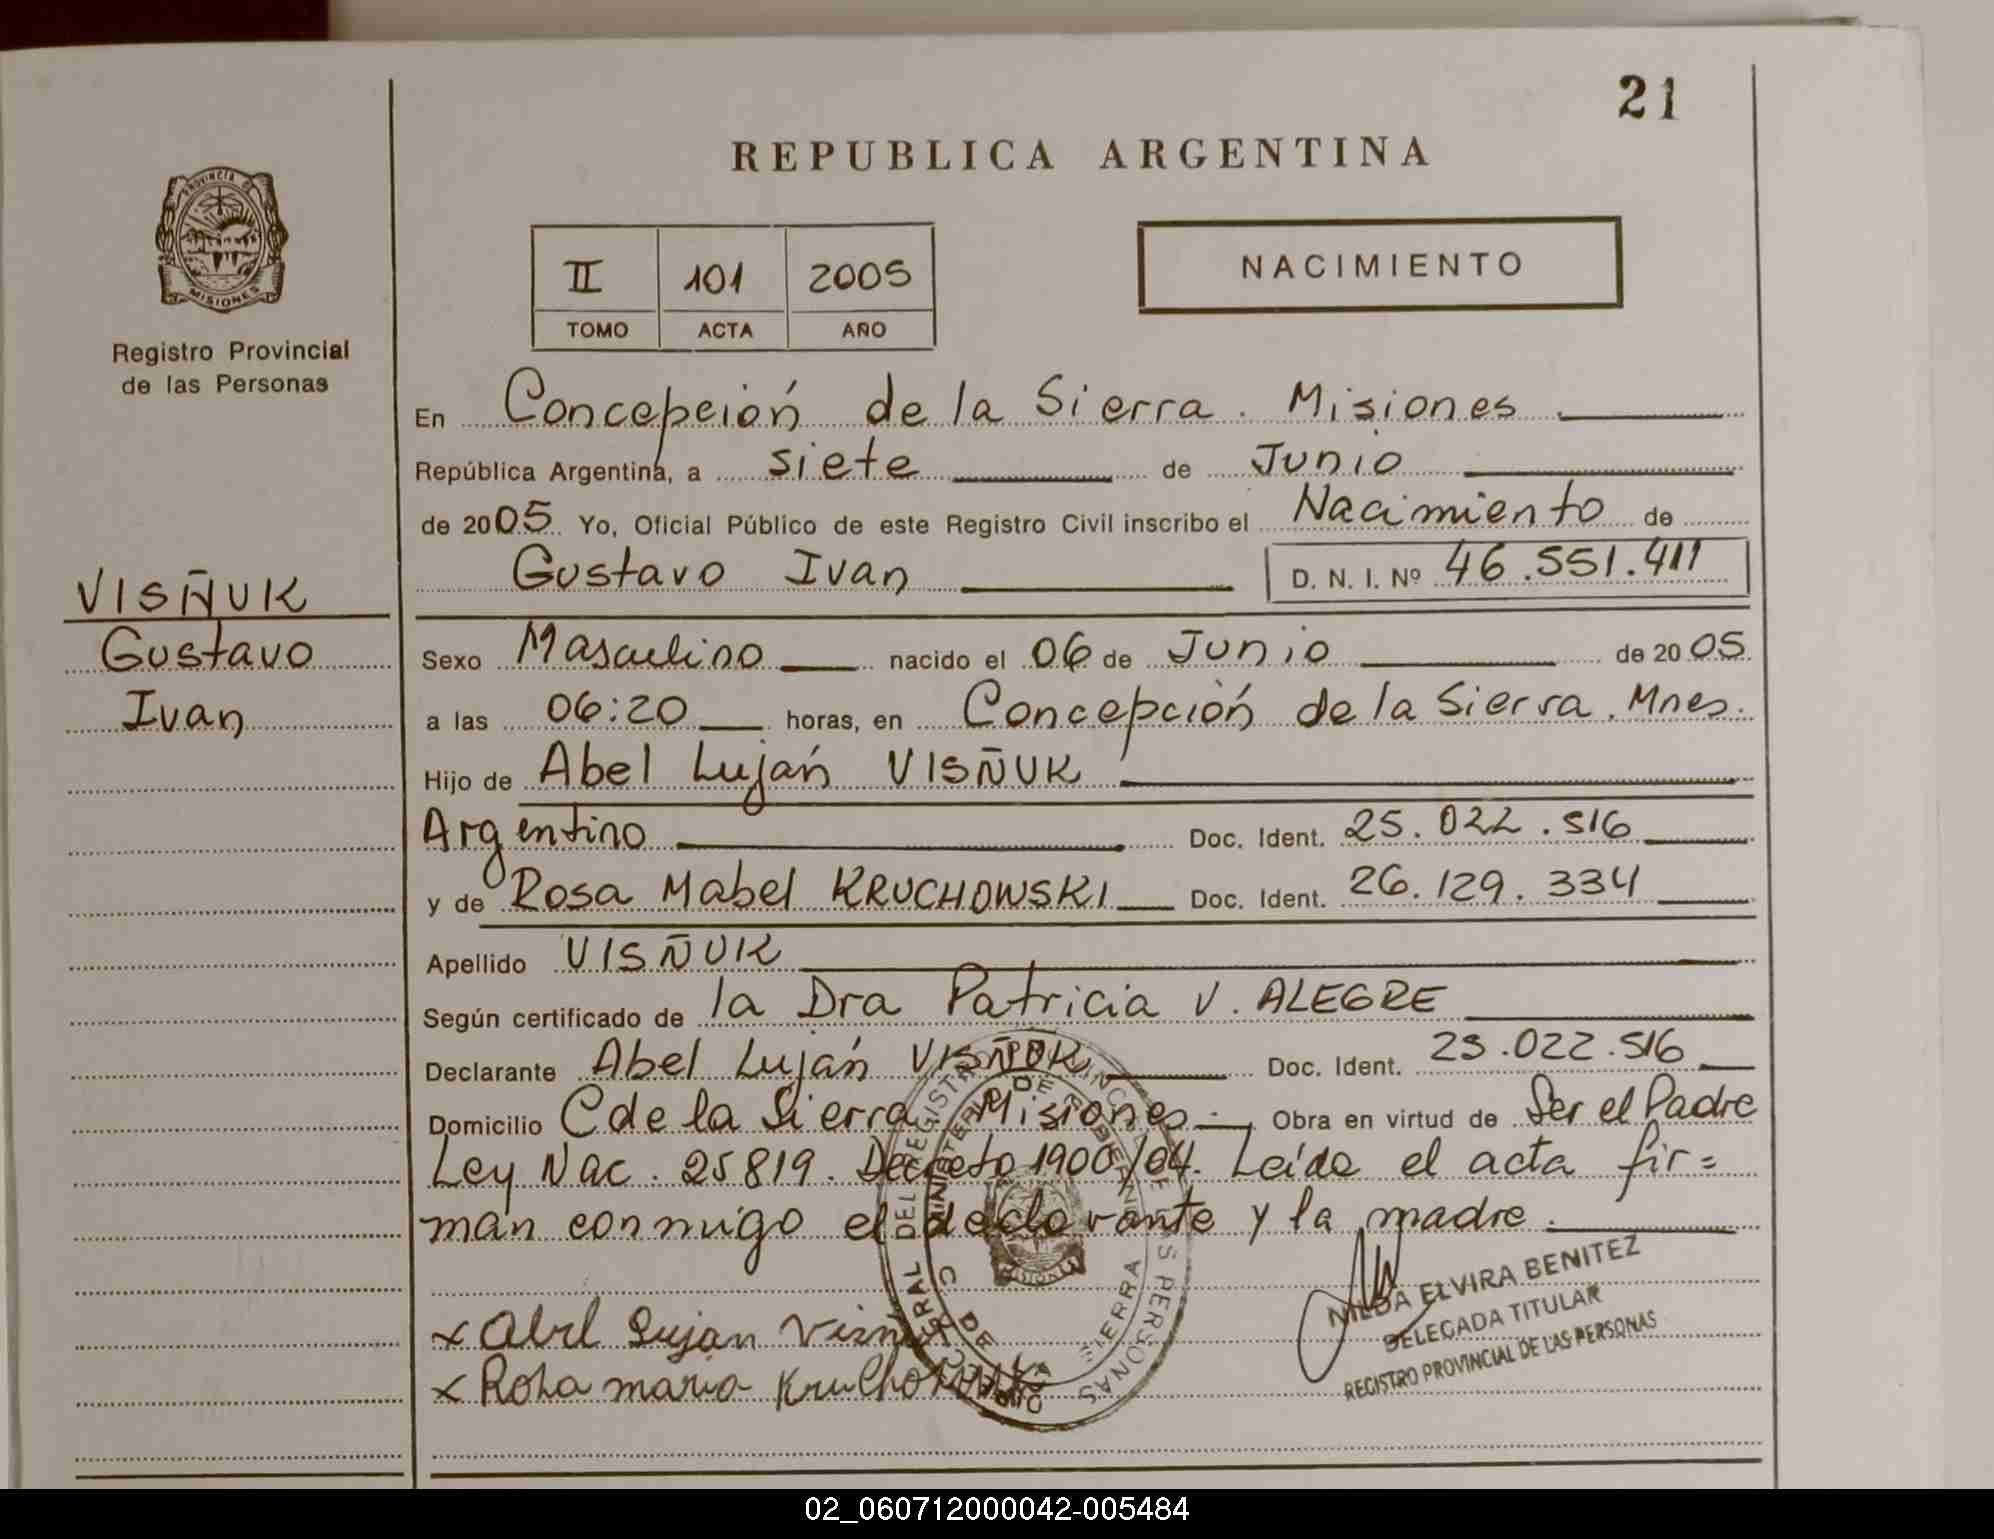 21
REPUBLICA ARGENTINA
PROVINCIA DE
MISIONES
Registro Provincial
de las Personas
II 101 2005
TOMO ACTA AÑO
NACIMIENTO
En Concepción de la Sierra. Misiones
República Argentina, a siete de Junio
de 2005. Yo, Oficial Público de este Registro Civil inscribo el Nacimiento de
Gustavo Ivan D. N. I. Nº 46.551.411
VISÑUK
Gustavo
Ivan
Sexo Masculino nacido el 06 de Junio de 2005
a las 06:20 horas, en Concepción de la Sierra. Mnes.
Hijo de Abel Luján VISÑUK
Argentino Doc. Ident. 25.022.516
y de Rosa Mabel KRUCHOWSKI Doc. Ident. 26.129.334
Apellido VISÑUK
Según certificado de la Dra Patricia V. ALEGRE
Declarante Abel Luján VISÑUK Doc. Ident. 25.022.516
Domicilio C de la Sierra Misiones.- Obra en virtud de Ser el Padre
Ley Nac. 25819. Decreto 1900/04. Leída el acta fir=
man conmigo el declarante y la madre.
x Abel Lujan
x Rosa maria
NILDA ELVIRA BENITEZ
DELEGADA TITULAR
REGISTRO PROVINCIAL DE LAS PERSONAS
02_060712000042-005484